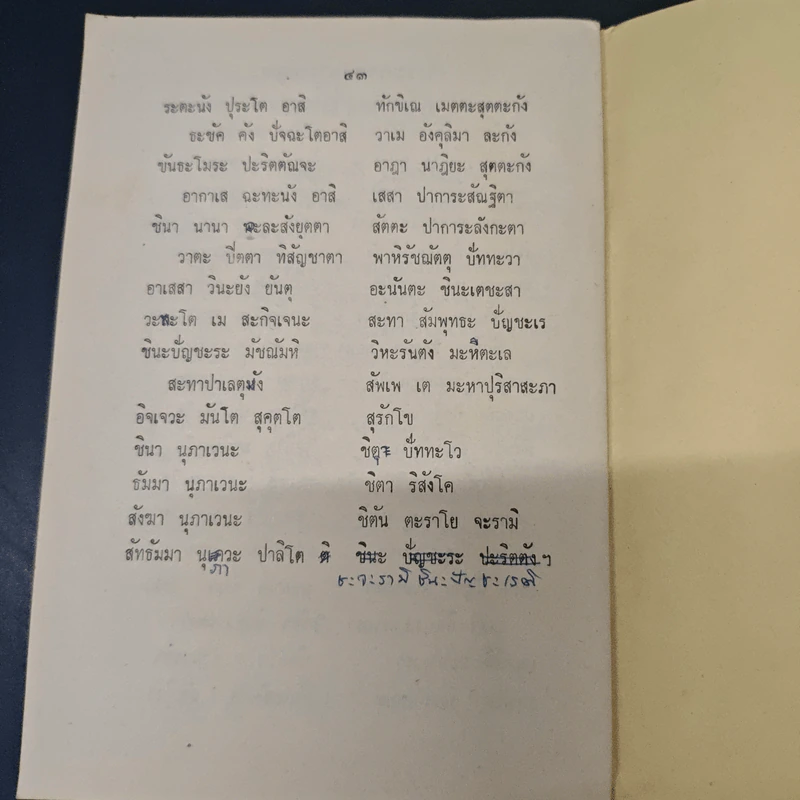 ๔๓
ระตะนัง ปุระโต อาสิ ทักขิเณ เมตตะสุตตะกัง
ธะชัค คัง ปัจฉะโตอาสิ วาเม อังคุลิมา ละกัง
ขันธะโมระ ปะริตตัณจะ อาฎา นาฎิยะ สุตตะกัง
อากาเส ฉะทะนัง อาสิ เสสา ปาการะสัณฐิตา
ชินา นานา พะละสังยุตตา สัตตะ ปาการะลังกะตา
วาตะ ปิตตา ทิสัญชาตา พาหิรัชณัตตุ ปัททะวา
อาเสสา วินะยัง ยันตุ อะนันตะ ชินะเตชะสา
วะสะโต เม สะกิจเจนะ สะทา สัมพุทธะ ปัญชะเร
ชินะปัญชะระ มัชณัมหิ วิหะรันตัง มะหีตะเล
สะทาปาเลตุมัง สัพเพ เต มะหาปุริสาสะภา
อิจเจวะ มันโต สุคุตโต สุรักโข
ชินา นุภาเวนะ ชิตุ ปัททะโว
ธัมมา นุภาเวนะ ชิตา ริสังโค
สังฆา นุภาเวนะ ชิตัน ตะราโย จะรามิ
สัทธัมมา นุเวะ ปาลิโต ติ ชินะ ปัญชะระ ปะริตตัง ฯ
ภา จะรามิ ชินะปัญชะเรติ